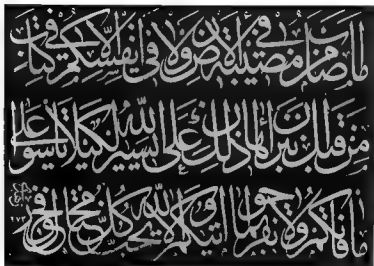 ما أصاب من مصيبة في الأرض ولا في أنفسكم إلا في كتاب
من قبل أن نبرأها إن ذلك على الله يسير لكيلا تأسوا على
ما فاتكم ولا تفرحوا بما آتيكم والله لا يحب كل مختال فخور